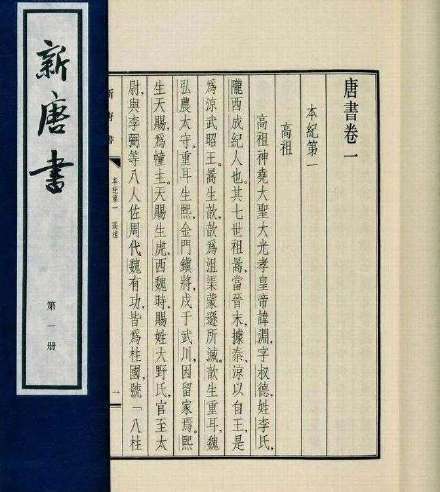 新唐書
第一册
唐書卷一
本紀第一
高祖
高祖神堯大聖大光孝皇帝諱淵,字叔德,姓李氏,
隴西成紀人也。其七世祖暠,當晉末,據秦、涼以自王,是
爲涼武昭王。暠生歆,歆爲沮渠蒙遜所滅。歆生重耳,魏
弘農太守。重耳生熙,金門鎭將,戍于武川,因留家焉。熙
生天賜,爲幢主。天賜生虎,西魏時,賜姓大野氏,官至太
尉,與李弼等八人佐周代魏有功,皆爲柱國,號「八柱
新唐書
本紀第一 高祖
一